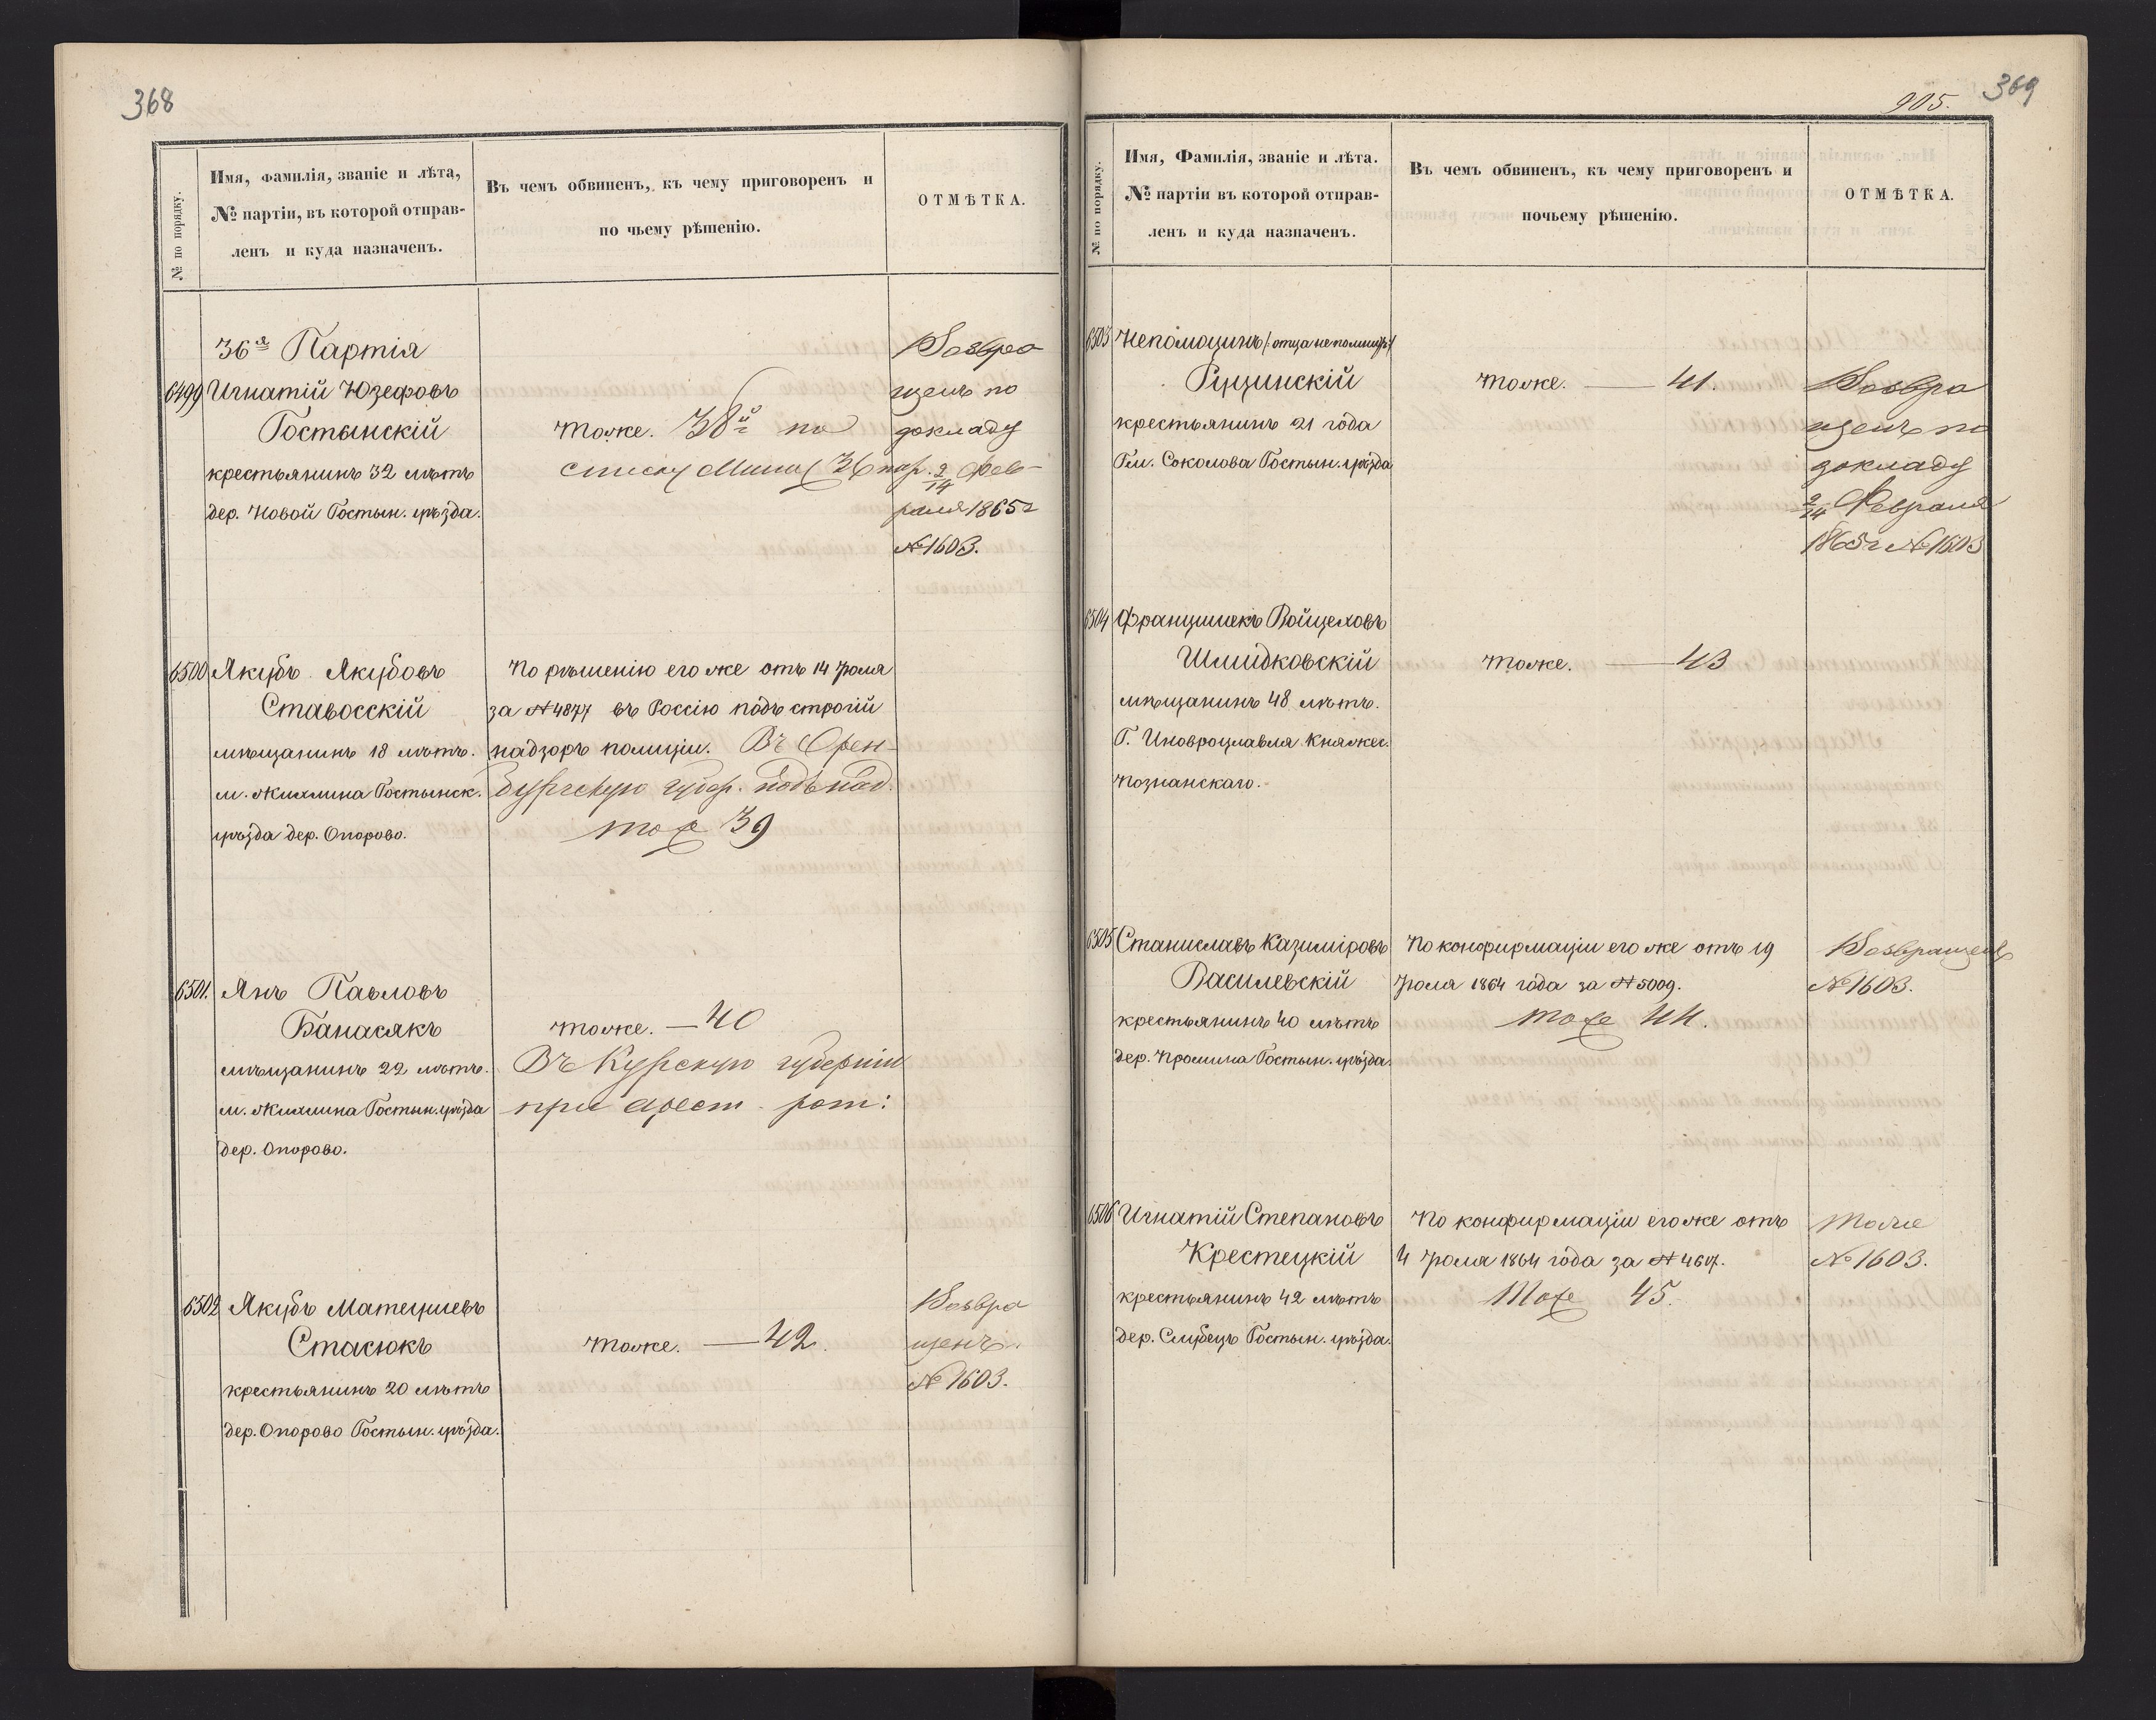 368
№ по порядку.
Имя, фамилія, званіе и лѣта,
№ партіи, въ которой отправ-
ленъ и куда назначенъ.
Въ чемъ обвиненъ, къ чему приговоренъ и
по чьему рѣшенію.
ОТМѢТКА.
36я Партія
6499 Игнатій Юзефовъ
Гостынскій
крестьянинъ 32 лѣтъ
дер. Новой Гостын. уѣзда.
тоже. 38й по
списку 36 пар.
Возвра
щенъ по
докладу
2/14 Фев-
раля 1865 г
№ 1603.
6500 Якубъ Якубовъ
Ставосскій
мѣщанинъ 18 лѣтъ.
м. Жихлина Гостынск.
уѣзда дер. Опорово.
По рѣшенію его же отъ 14 Іюля
за № 4877 въ Россію подъ строгій
надзоръ полиціи. Въ Орен-
бургскую губер. подъ над.
тоже 39
6501. Янъ Павловъ
Банасякъ
мѣщанинъ 22 лѣтъ.
м. Жихлина Гостын. уѣзда
дер. Опорово.
тоже. — 40
Въ Курскую губернію
при арест. рот:
6502 Якубъ Матеушевъ
Стасюкъ
крестьянинъ 20 лѣтъ
дер. Опорово Гостын. уѣзда.
тоже. — 42.
Возвра
щенъ.
№ 1603.
369
905.
№ по порядку.
Имя, Фамилія, званіе и лѣта.
№ партіи въ которой отправ-
ленъ и куда назначенъ.
Въ чемъ обвиненъ, къ чему приговоренъ и
почьему рѣшенію.
ОТМѢТКА.
6503 Непомуцинъ /: отца не помнитъ :/
Рущинскій
крестьянинъ 21 года
Гм. Соколова Гостын. уѣзда
тоже. — 41.
Возвра
щенъ по
докладу
2/14 Февраля
1865 г № 1603
6504 Францишекъ Войцеховъ
Шмидковскій
мѣщанинъ 48 лѣтъ.
Г. Иновроцлавля Княжес.
Познанскаго.
тоже. — 43
6505 Станиславъ Казиміровъ
Василевскій
крестьянинъ 40 лѣтъ
дер. Промина Гостын. уѣзда.
По конфирмаціи его же отъ 19
Іюля 1864 года за № 5009.
тоже 44.
Возвращенъ
№ 1603.
6506 Игнатій Степановъ
Крестецкій
крестьянинъ 42 лѣтъ
дер. Слубецъ Гостын. уѣзда.
По конфирмаціи его же отъ
4 Іюля 1864 года за № 4607.
Тоже 45.
тоже
№ 1603.